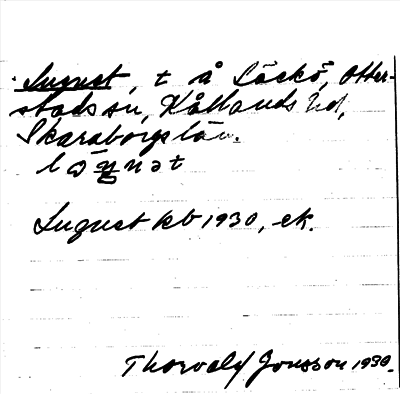 August, t å Läckö, Otter-
stads sn, Kållands hd,
Skaraborgs län.

August kb 1930, ek.
Thorvald Jonsson 1930.